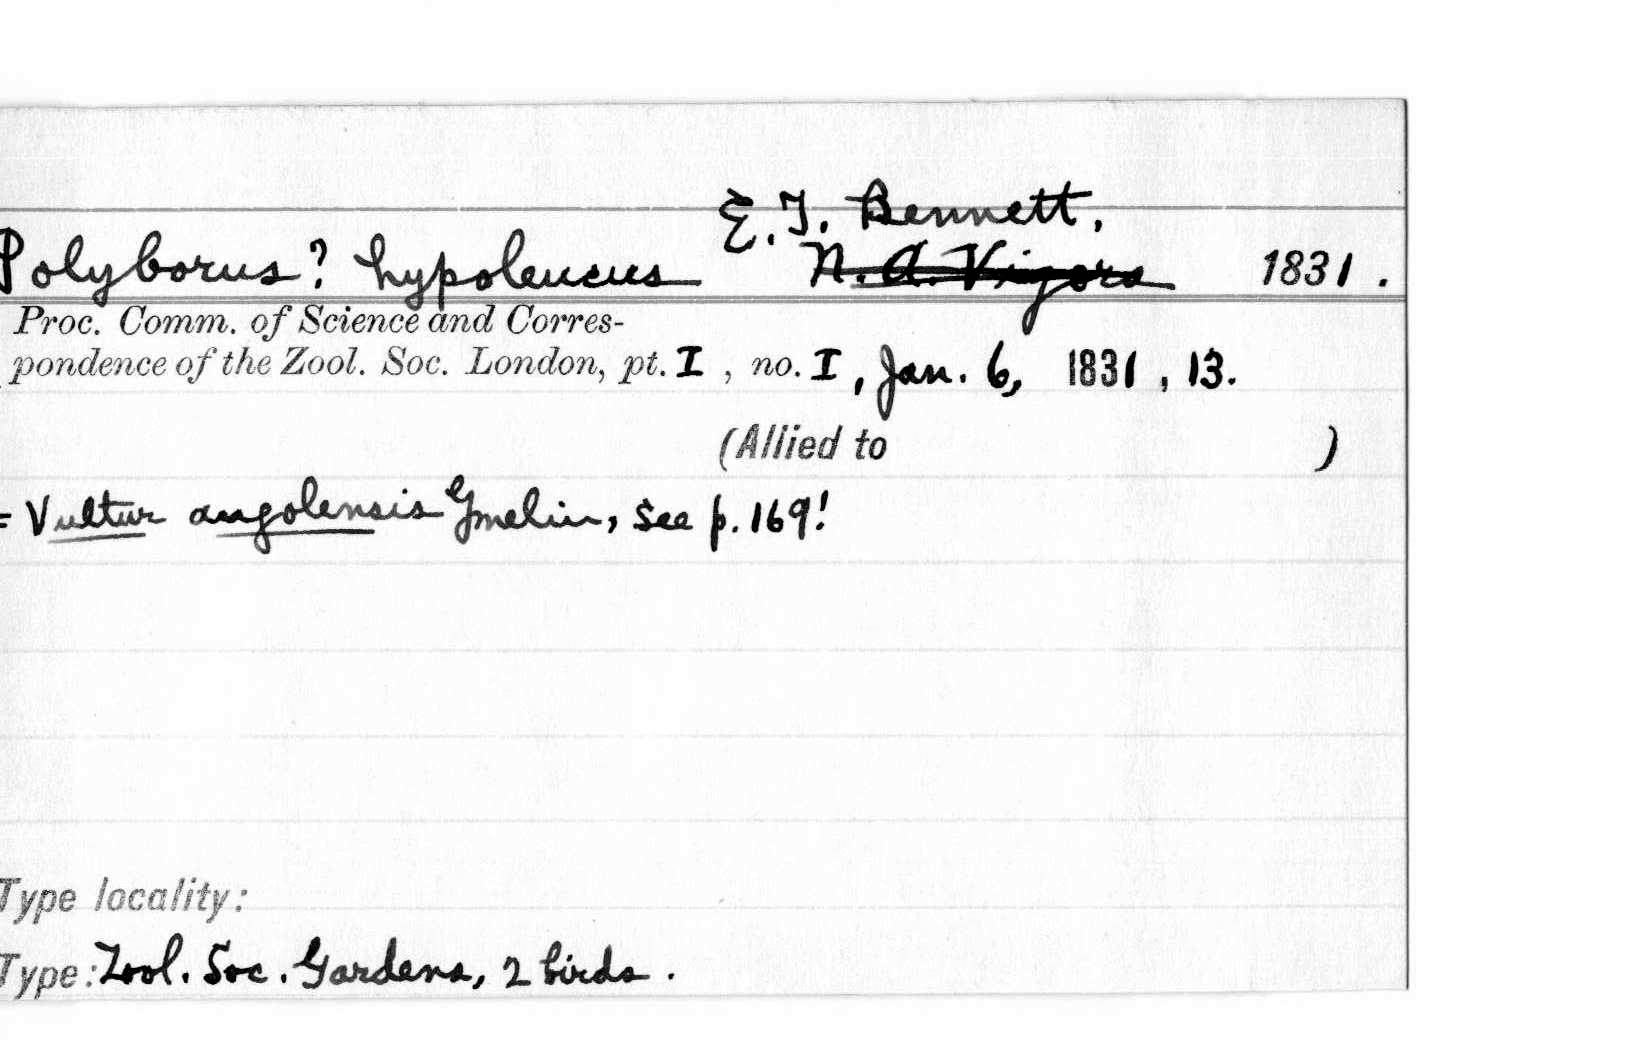 E. T. Bennett,
Polyborus? hypoleucus N. A. Vigors 1831.
Proc. Comm. of Science and Corres-
pondence of the Zool. Soc. London, pt. I , no. I , Jan. 6, 1831 , 13.
(Allied to )
= Vultur angolensis Gmelin, see p. 169!
Type locality:
Type: Zool. Soc. Gardens, 2 birds.